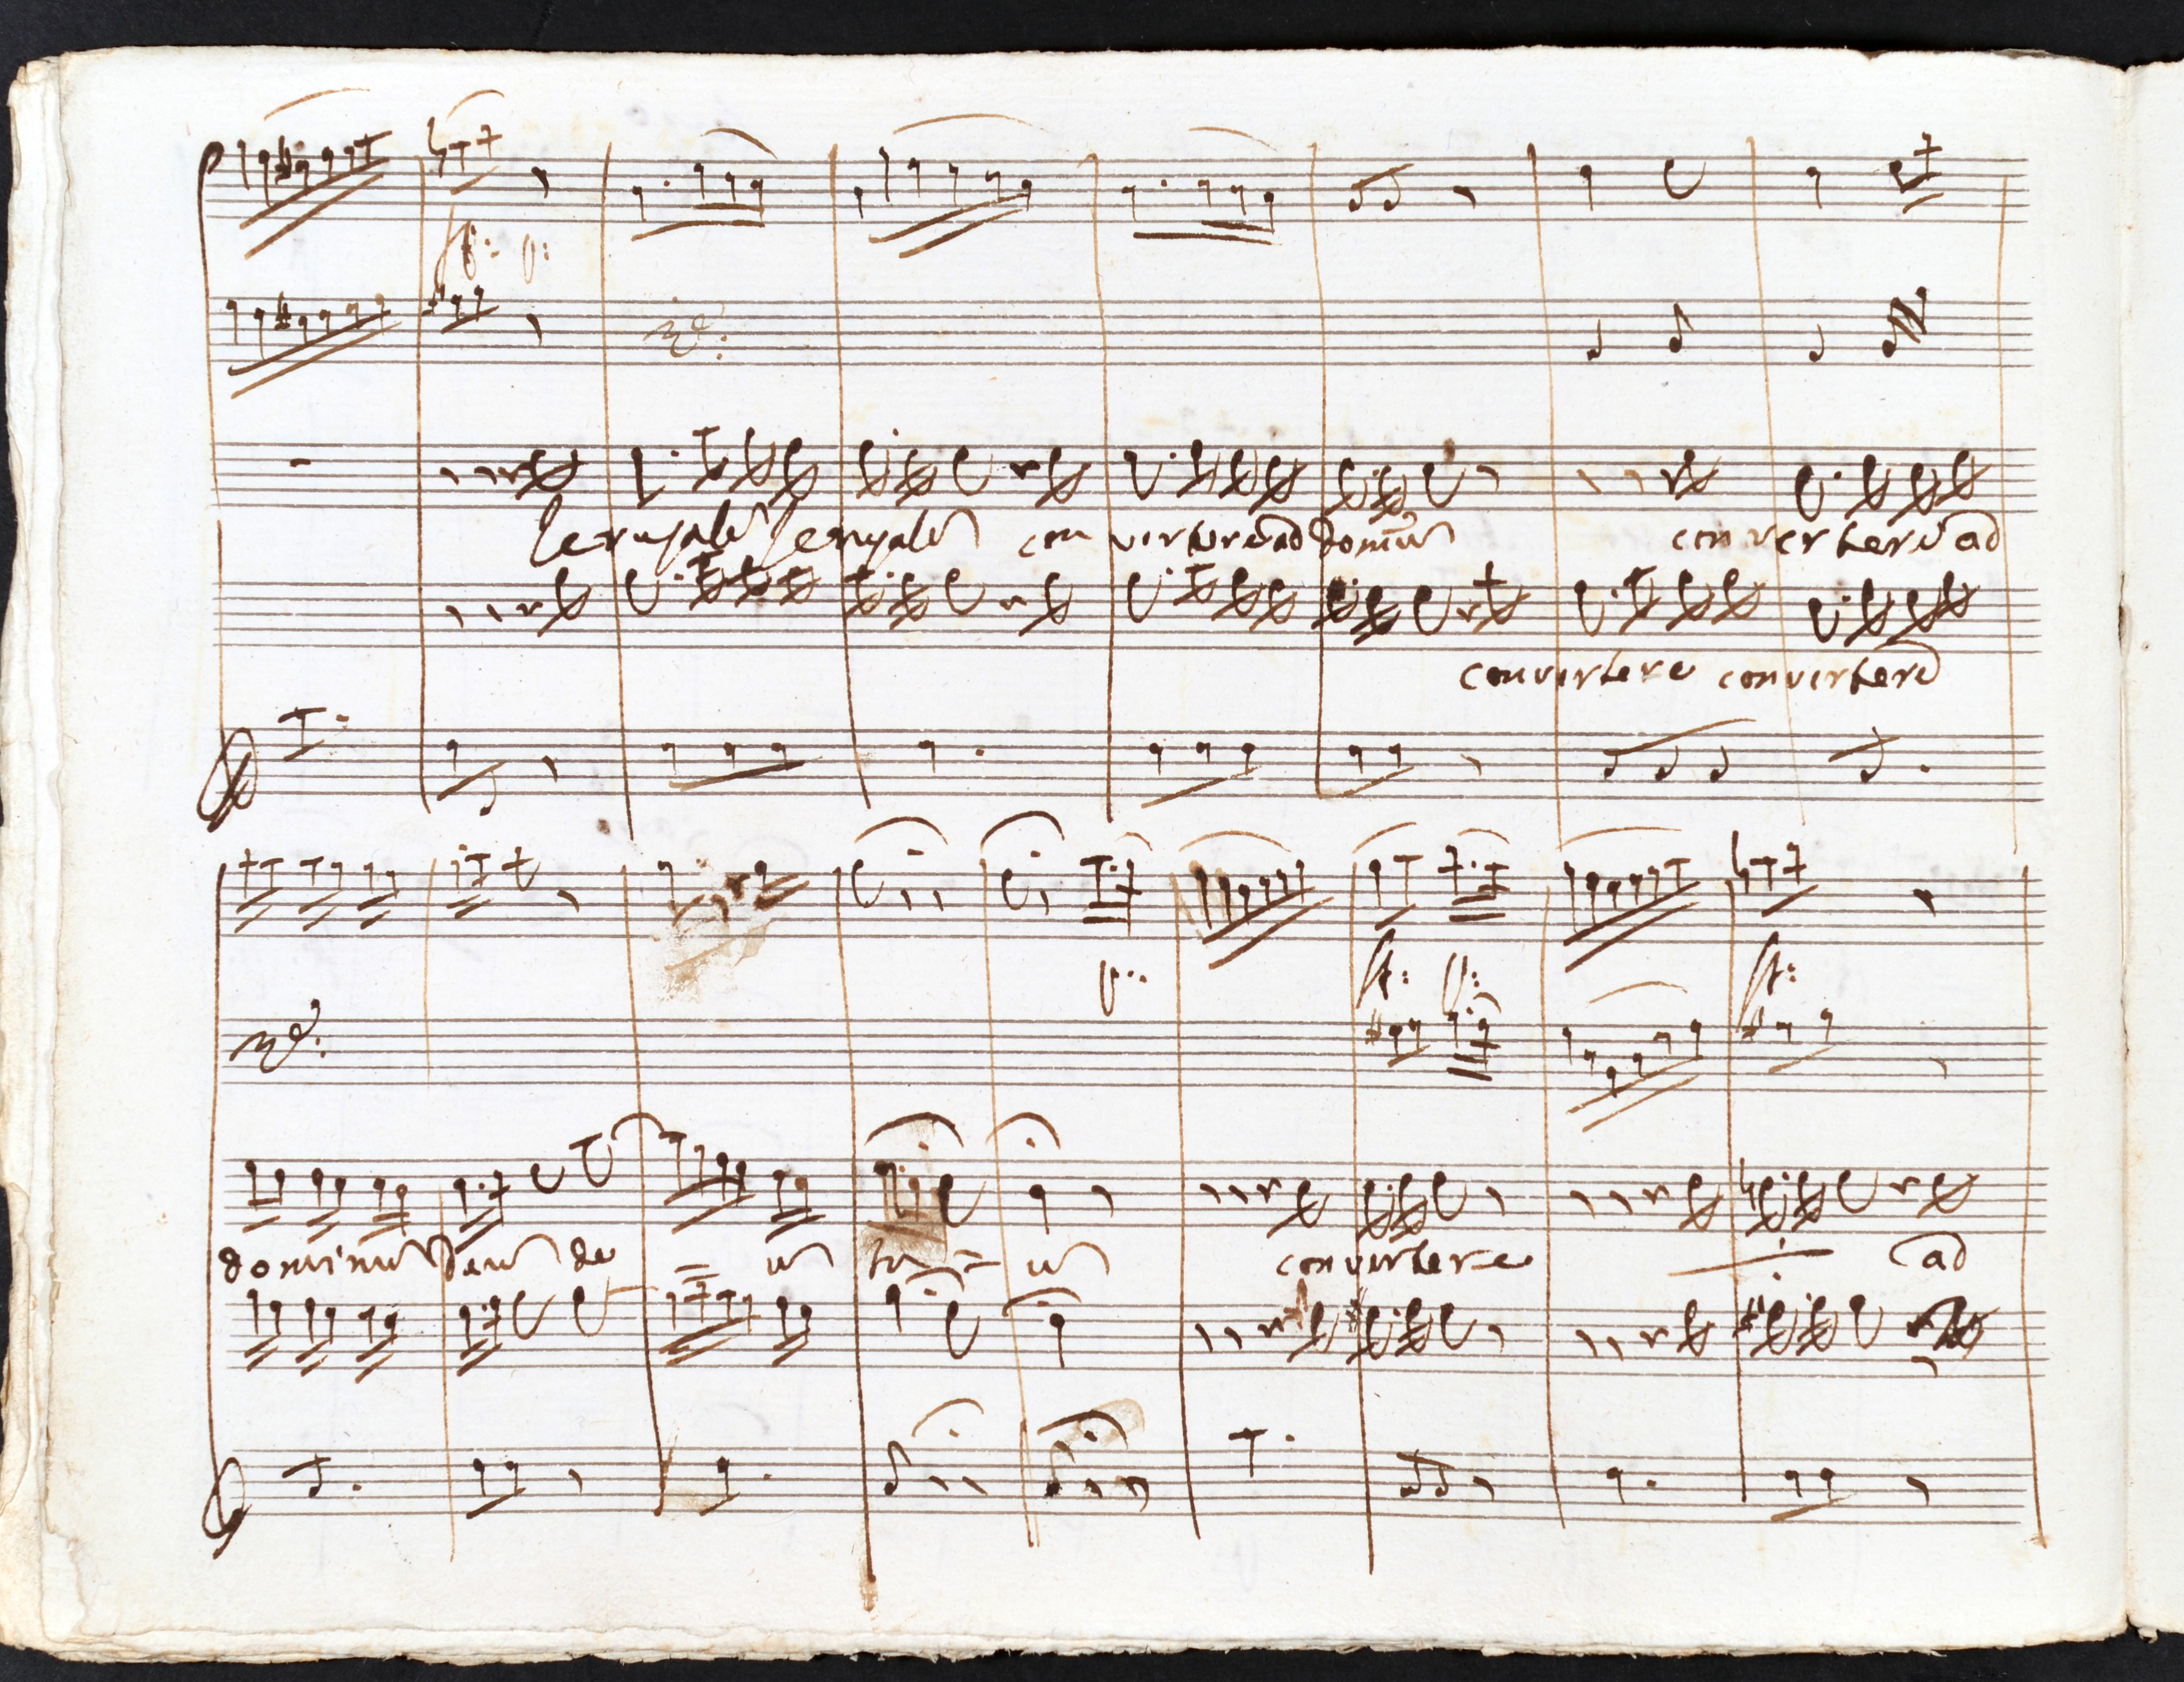 f: p:
Jerusalem Jerusalem con vertere ad dominum convertere ad
convertere convertere
p:
f: p: f:
dominum Deum de = um tu = um convertere ad